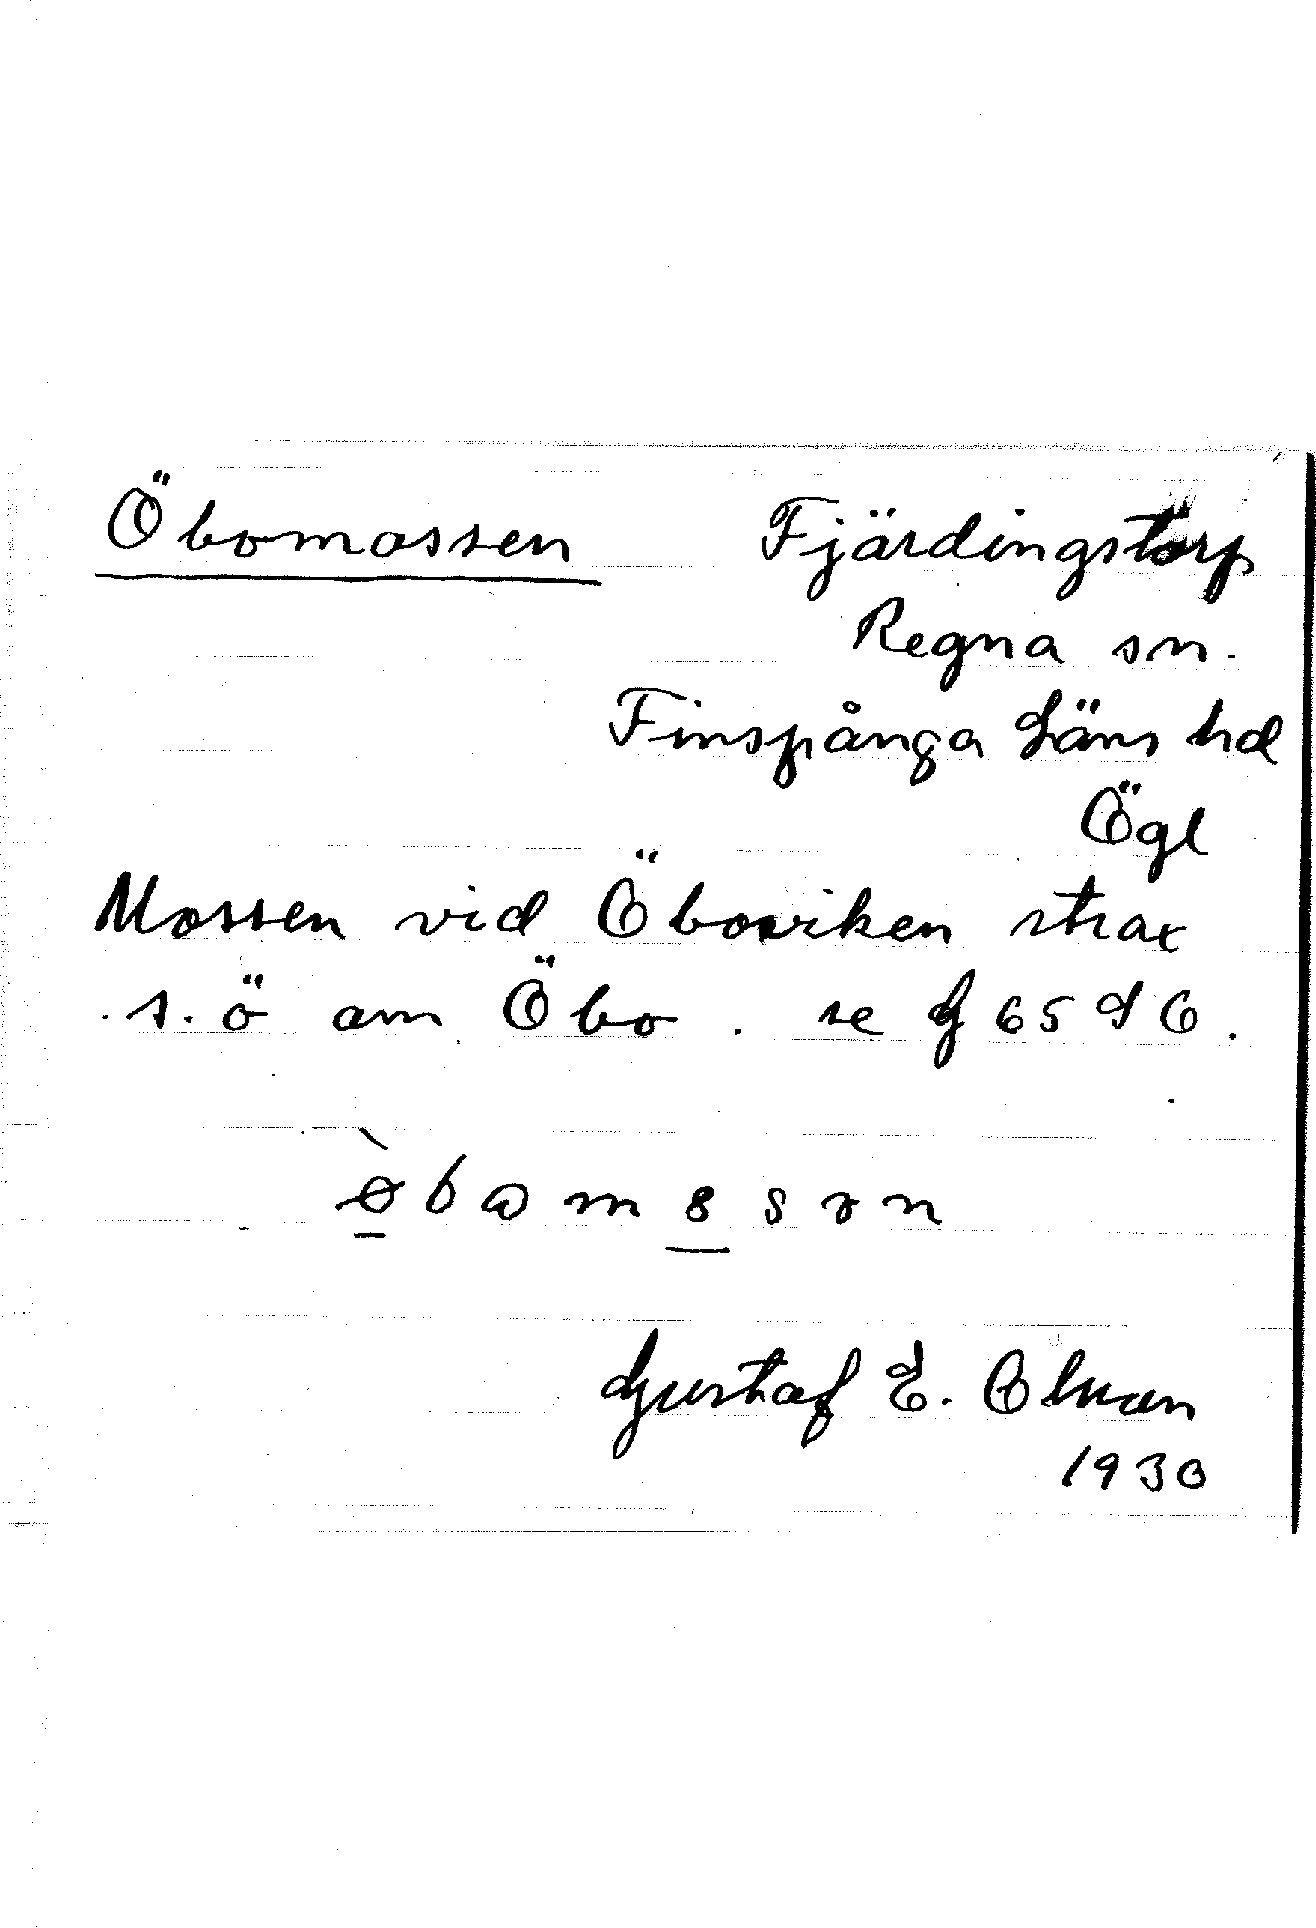 Öbomossen Fjärdingstorp
Regna sn.
Finspånga Läns hd
Ögl
Mossen vid Öboviken strax
s. ö om Öbo. se
Gustaf E. Olsson
1930